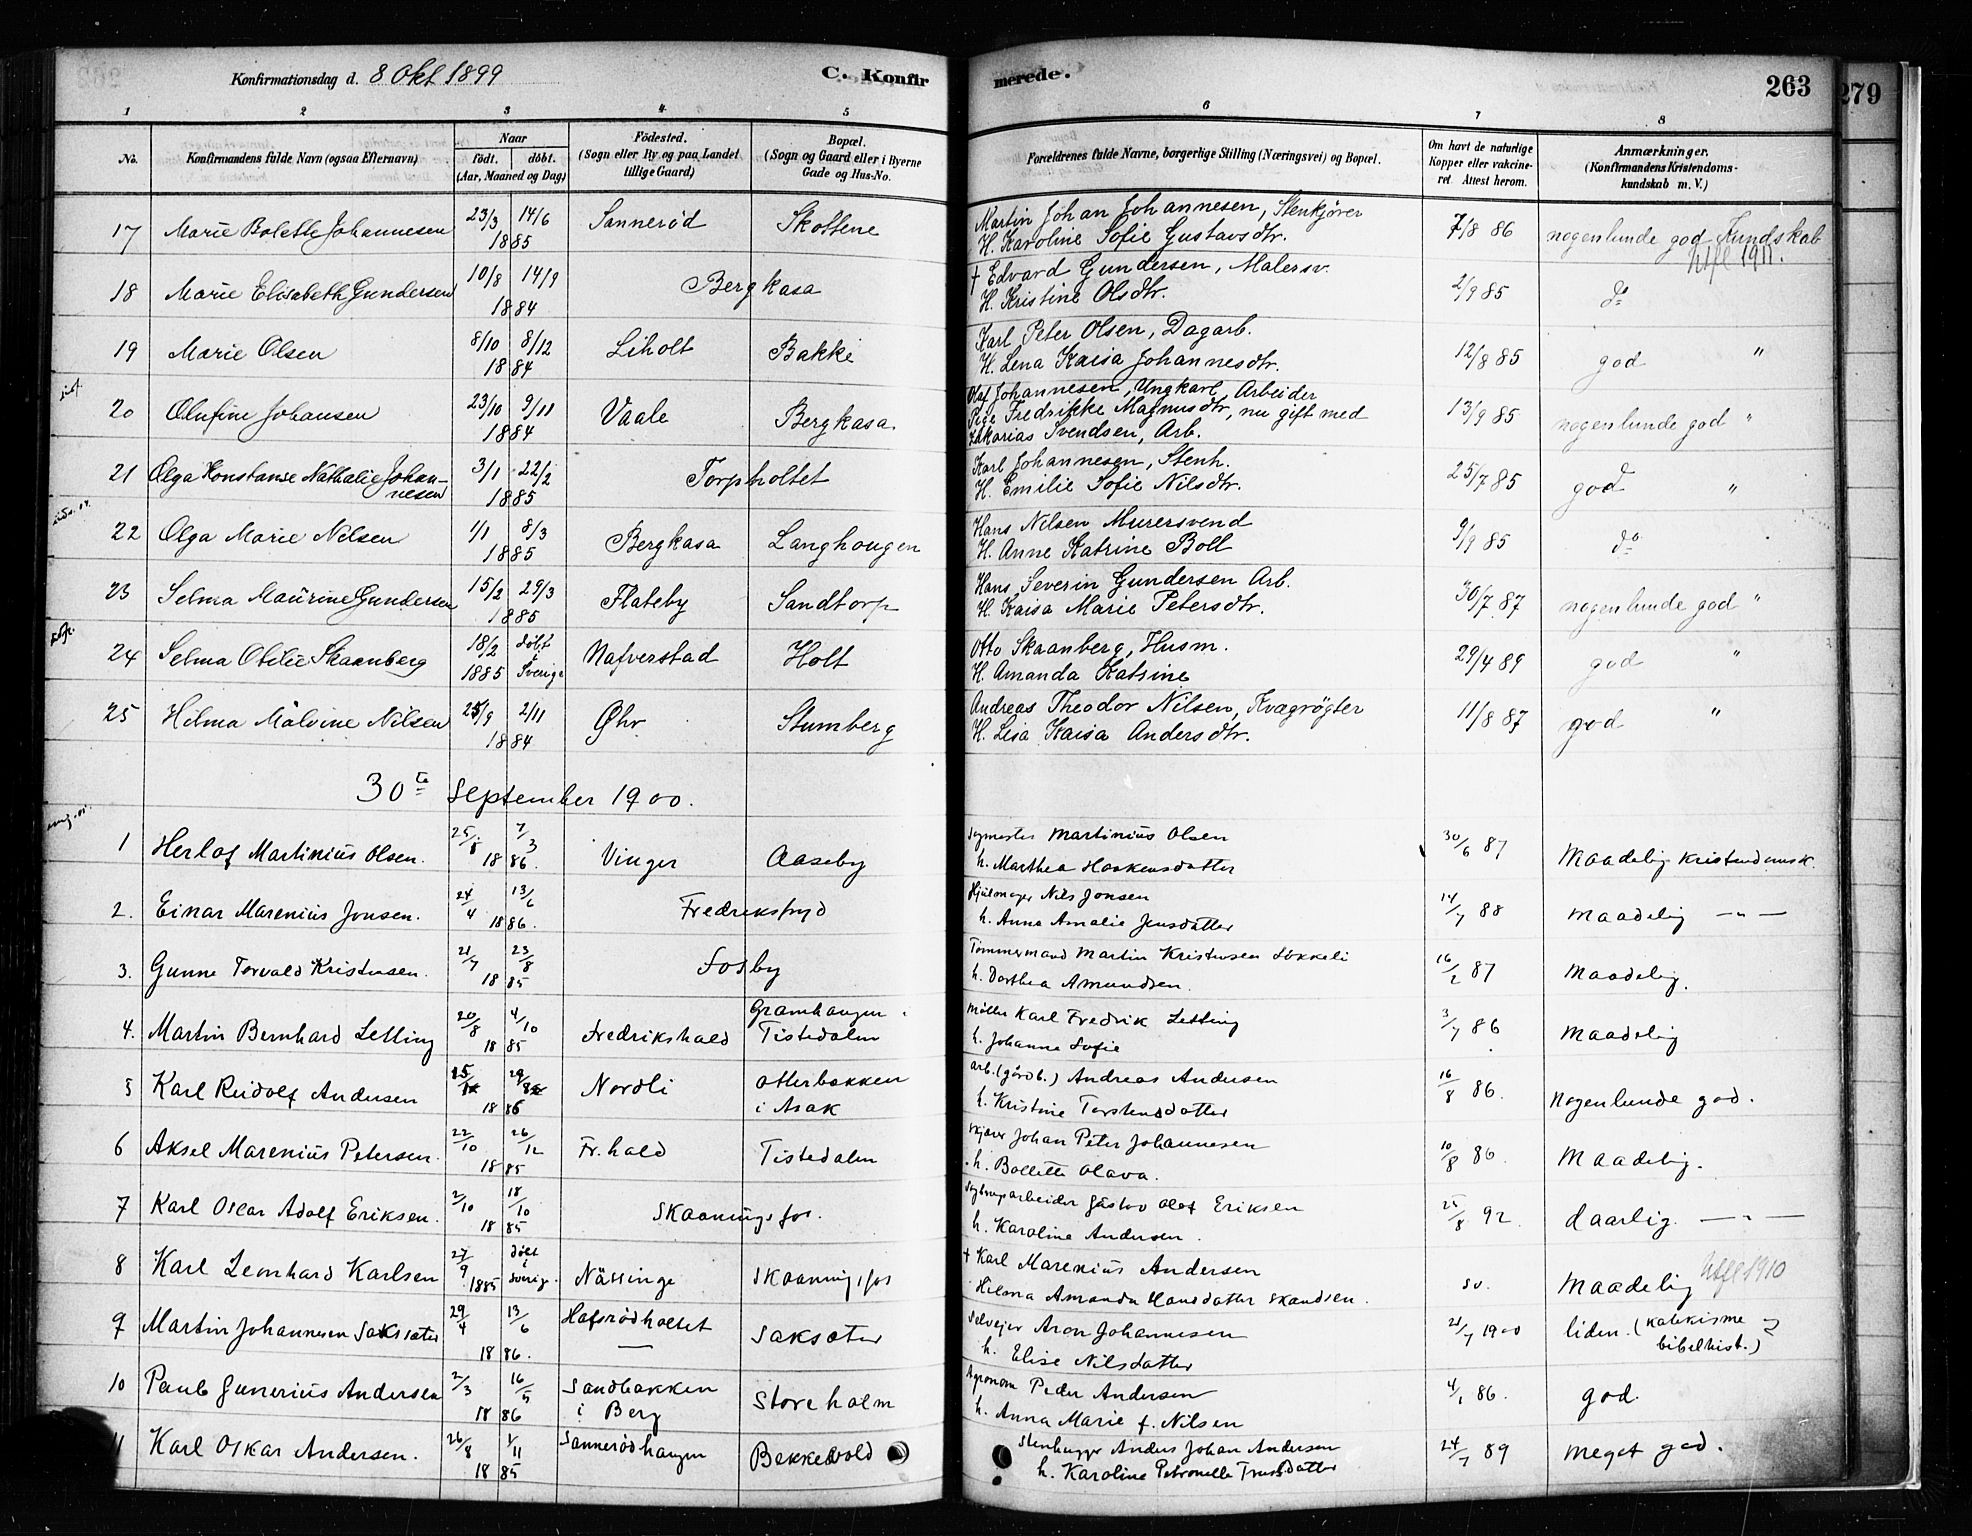 Konfirmationsdag d. 8 Okt 1899
C. Konfirmerede.
263
279
1 2 3 4 5 6 7 8
No.
Konfirmandens fulde Navn (ogsaa Efternavn)
Naar
födt. döbt.
(Aar, Maaned og Dag)
Födested.
(Sogn eller By og paa Landet
tillige Gaard)
Bopæl.
(Sogn og Gaard eller i Byerne
Gade og Hus-No.
Forældrenes fulde Navne, borgerlige Stilling (Næringsvei) og Bopæl.
Om havt de naturlige
Kopper eller vakcine-
ret. Attest herom.
Anmærkninger.
(Konfirmandens Kristendoms-
kundskab m. V.)
17 Marie Bolette Johannesen 23/3 14/6 1885 Sannerød Skottene
Martin Johan Johannesen, Stenkjører
H. Karoline Sofie Gustavsdtr. 7/8 86 nogenlunde god Kundskab
18 Marie Elisabeth Gundersen 10/8 14/9 1884 Bergkasa
† Edvard Gundersen, Malersv.
H. Kristine Olsdtr. 2/9 85 do utfl 1911.
19 Marie Olsen 8/10 8/12 1884 Liholt Bakke
Karl Peter Olsen, Dagarb.
H. Lena Kaisa Johannesdtr. 12/8 85 god "
20 Olufine Johansen 23/10 9/11 1884 Vaale Bergkasa.
Olaf Johannesen, Ungkarl, Arbeider
Pige Fredrikke Magnusdtr, nu gift med
Zakarias Svendsen, Arb. 13/9 85 nogenlunde god "
21 Olga Konstanse Nathalie Johan-
nesen 3/1 22/2 1885 Torpholtet
Karl Johannesen, Stenh.
H. Emilie Sofie Nilsdtr. 25/7 85 god "
22 Olga Marie Nilsen 1/1 8/3 1885 Bergkasa Langhougen
Hans Nilsen Murersvend
H. Anne Katrine Boll 9/9 85 do
23 Selma Maurine Gundersen 15/2 29/3 1885 Flateby Sandtorp
Hans Severin Gundersen Arb.
H. Kaisa Marie Petersdtr. 30/7 87 nogenlunde god "
24 Selma Otilie Skaanberg 18/2 1885 döbt i Sverige Nafverstad Holt
Otto Skaanberg, Husm.
H. Amanda Katrine 29/4 89 god "
25 Hilma Malvine Nilsen 25/9 2/11 1884 Øhr Stumberg
Andreas Theodor Nilsen, Kvægrögter
H. Lisa Kaisa Andersdtr. 11/8 87 god "
30te September 1900.
1 Herlof Martinius Olsen. 25/8 7/3 1886. Vinger Aaseby
Martinius Olsen
h. Marthea Haakensdatter 30/6 87 Maadelig Kristendomsk.
2. Einar Marenius Jonsen. 24/4 13/6 1886. Fredriksfryd
Hjulmager Nils Jonsen
h. Anna Amalie Jensdatter 14/7 88 maadelig — " —
3. Gunne Torvald Kristensen. 21/7 23/8 1885 Fosby
Tømmermand Martin Kristensen Løkkeli
h. Dorthea Amundsen. 16/2 87 maadelig.
4. Martin Bernhard Letting 20/8 4/10 1885 Fredrikshald Gramhaugen
Tistedalen
Møller Karl Fredrik Letting
h. Johanne Sofie 3/7 86 maadelig
5 Karl Rudolf Andersen 1886 Nordli Otterbakken
i Asak
arb. (gårdb.) Andreas Andersen
h. Kristine Torstensdatter 16/8 86. nogenlunde god.
6 Aksel Marenius Petersen. 22/10 26/12 1885 Fr.hald Tistedalen
Johan Peter Johannesen
h. Bollette Olava. 10/8 86. Maadelig.
7 Karl Oscar Adolf Eriksen. 2/10 18/10 1885 Skaaningsfos.
Gustav Olof Eriksen
h. Karoline Andersen. 25/8 92. daarlig. — " —
8 Karl Leonhard Karlsen 27/9 1885 døbt i Sverige Nässinge Skaaningsfos
† Karl Marenius Andersen
Hilma Amanda Hansdatter Skaudsen. sv. maadelig utfl 1910
9 Martin Johannesen Saksæter 29/4 13/6 1886. Hafsrødholtet Saksæter
Selveier Aron Johannesen
h. Elise Nilsdatter 21/7 1900 liden. (katekisme og
bibelhist.)
10 Paul Gunerius Andersen 2/3 16/5 1886 Sandbakken
i Berg Storeholm
Agronom Peder Andersen
h. Anna Marie f. Nilsen 4/1 86. god.
11 Karl Oskar Andersen. 26/8 1/11 1885 Sannerødhaugen Bekkevold
Stenhugger Anders Johan Andersen
h. Karoline Petronelle Trulsdatter 24/7 89 meget god.